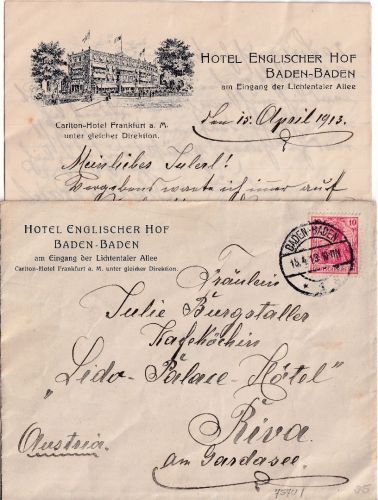 HOTEL ENGLISCHER HOF
BADEN-BADEN
am Eingang der Lichtentaler Allee
Carlton-Hotel Frankfurt a. M.
unter gleicher Direktion.
den 15. April 1913.
Mein liebes Juler!!
Vergebens warte ich immer auf
HOTEL ENGLISCHER HOF
BADEN-BADEN
am Eingang der Lichtentaler Allee
Carlton-Hotel Frankfurt a. M. unter gleicher Direktion.
10
BADEN-BADEN
15.4.13
Fräulein
Julie Burgstaller
Kafeköchin
"Lido-Palase-Hôtel"
Riva
Austria.
am Gardasee.